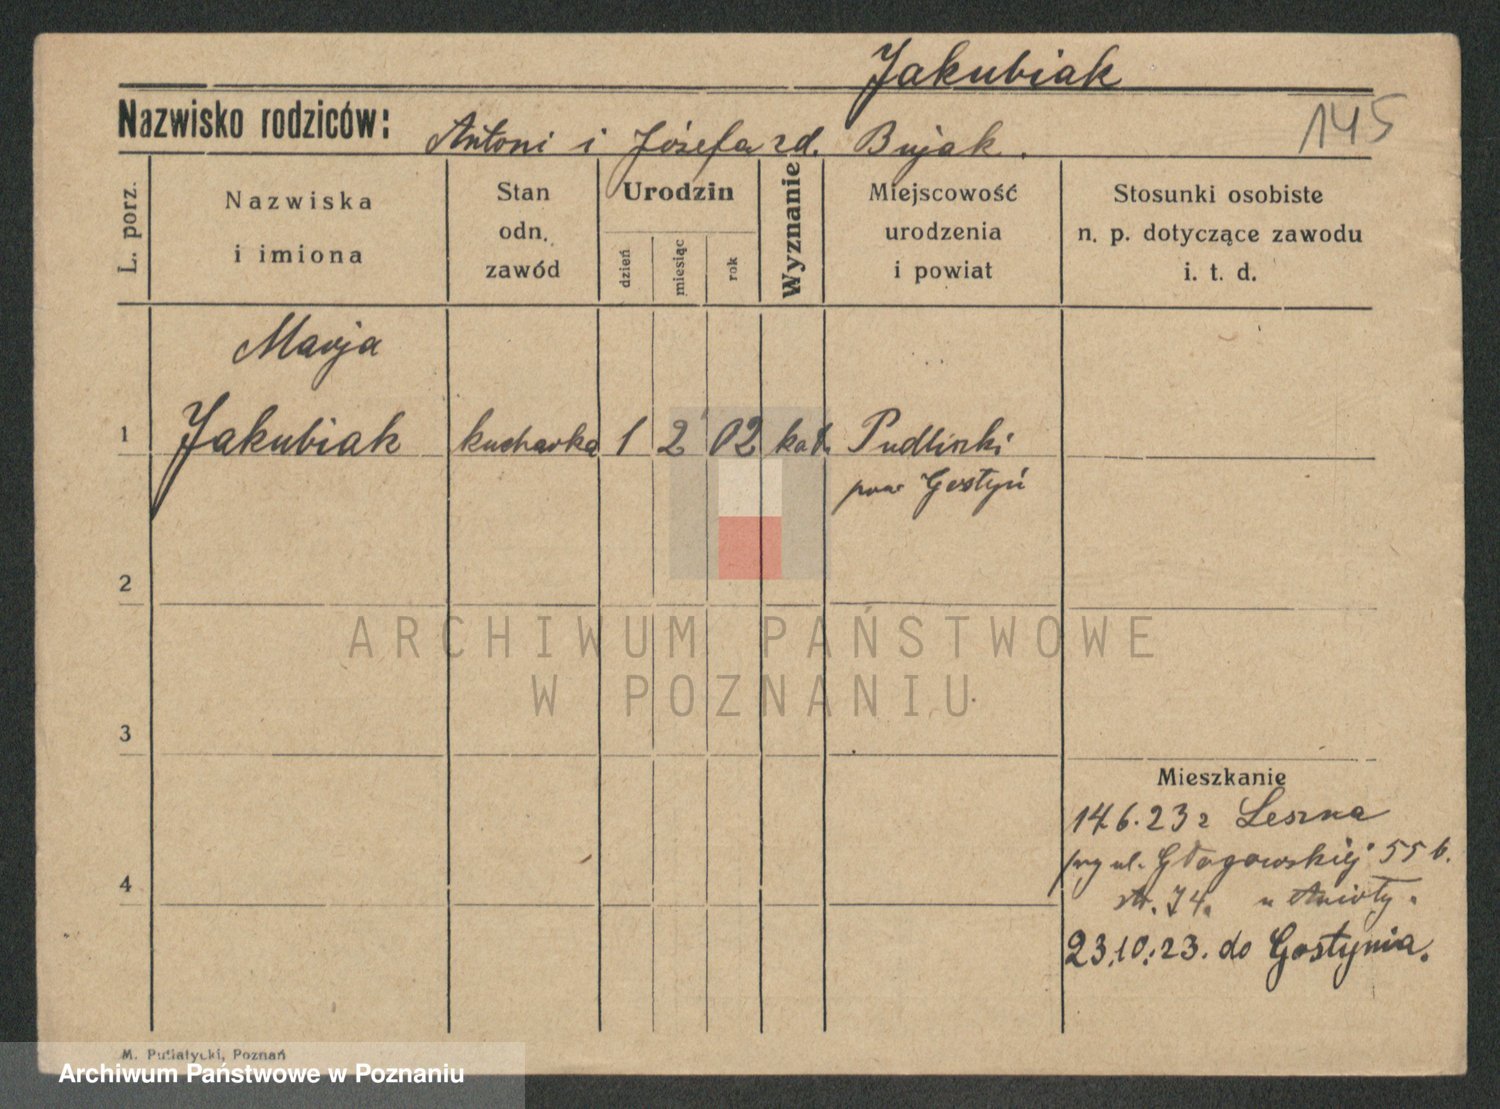 Jakubiak
Nazwisko rodziców: Antoni i Józefa zd. Bujak.
145
L. porz.
Nazwiska
i imiona
Stan
odn.
zawód
Urodzin
dzień
miesiąc
rok
Wyznanie
Miejscowość
urodzenia
i powiat
Stosunki osobiste
n. p. dotyczące zawodu
i. t. d.
Marja
1 Jakubiak kucharka 1 2 02 kat. Pudliszki
pow Gostyń
2
ARCHIWUM PAŃSTWOWE
W POZNANIU
3
Mieszkanie
14.6.23 z Leszna
przy ul. Głogowskiej 55 b.
4
str. 74. u
23.10.23. do Gostynia.
M. Putiatycki, Poznań
Archiwum Państwowe w Poznaniu